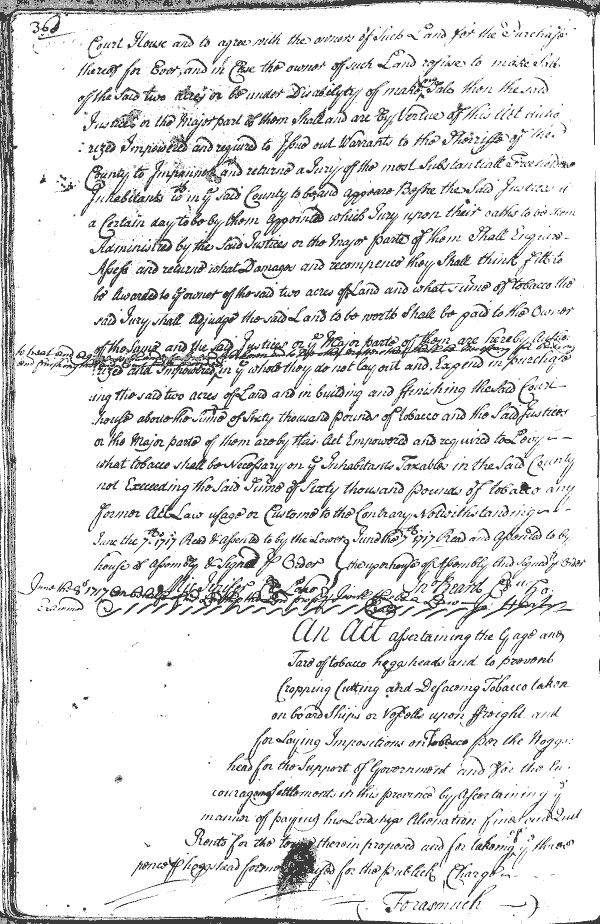 36
Court House and to agree with the owners of Such Land for the Purchase
thereof for Ever, and in Case the owner of such Land refuse to make Sale
of the said two Acres or be under Disability of making Sale then the said
Justices or the Major part of them Shall and are by Vertue of this Act autho
:rized Impowered and required to Issue out Warrants to the Sherriffe of the
County to Impannell and returne a Jury of the most Substantiall Freeholders
Inhabitants in ye said County to be and appeare Before the Said Justices
a Certain day to be by them Appointed which Jury upon their oaths to be
Administred by the Said Justices or the Major parte of them Shall Enquire
Assess and returne what Damages and recompence they Shall think fitt to
be Awarded to ye owner of the said two acres of Land and what Sume of tobacco the
said Jury Shall adjudge the said Land to be worth Shall be paid to the Owner
of the Same and the said Justices or ye Major parte of them are hereby Autho
to treat and
:rized and Impowered in ye whole they do not lay out and Expend in purchase
ing the said two acres of Land and in building and ffinishing the Said Court
house above the Sume of Sixty thousand pounds of tobacco and the Said Justices
or the Major parte of them are by this Act Empowered and required to Levy
what tobacco shall be Necessary on ye Inhabitants Taxables in the Said County
not Exceeding the Said Sume of Sixty thousand pounds of tobacco any
former Act Law usage or Custome to the Contrary Notwithstanding
June the 7th 1717 Read & Assented to by the Lower
house of Assembly & Signed p Order
June the 7th 1717 Read and Assented to by
the upper house of Assembly And Signed p Order
June the 8th 1717
An Act assertaining the Gage and
Tare of tobacco hoggsheads and to prevent
Cropping Cutting and Defaceing Tobacco taken
on board Ships or Vessells upon ffreight and
for Laying Impositions on Tobacco per the Hoggs:
head for the Support of Government and for the En
couragemt Settlements in this province by Ascertaining ye
manner of paying his Lordships Alienation fines and Quit
Rents for the therein proposed and for takeing off ye three
pence p hogshead for the publick Charge
Forasmuch